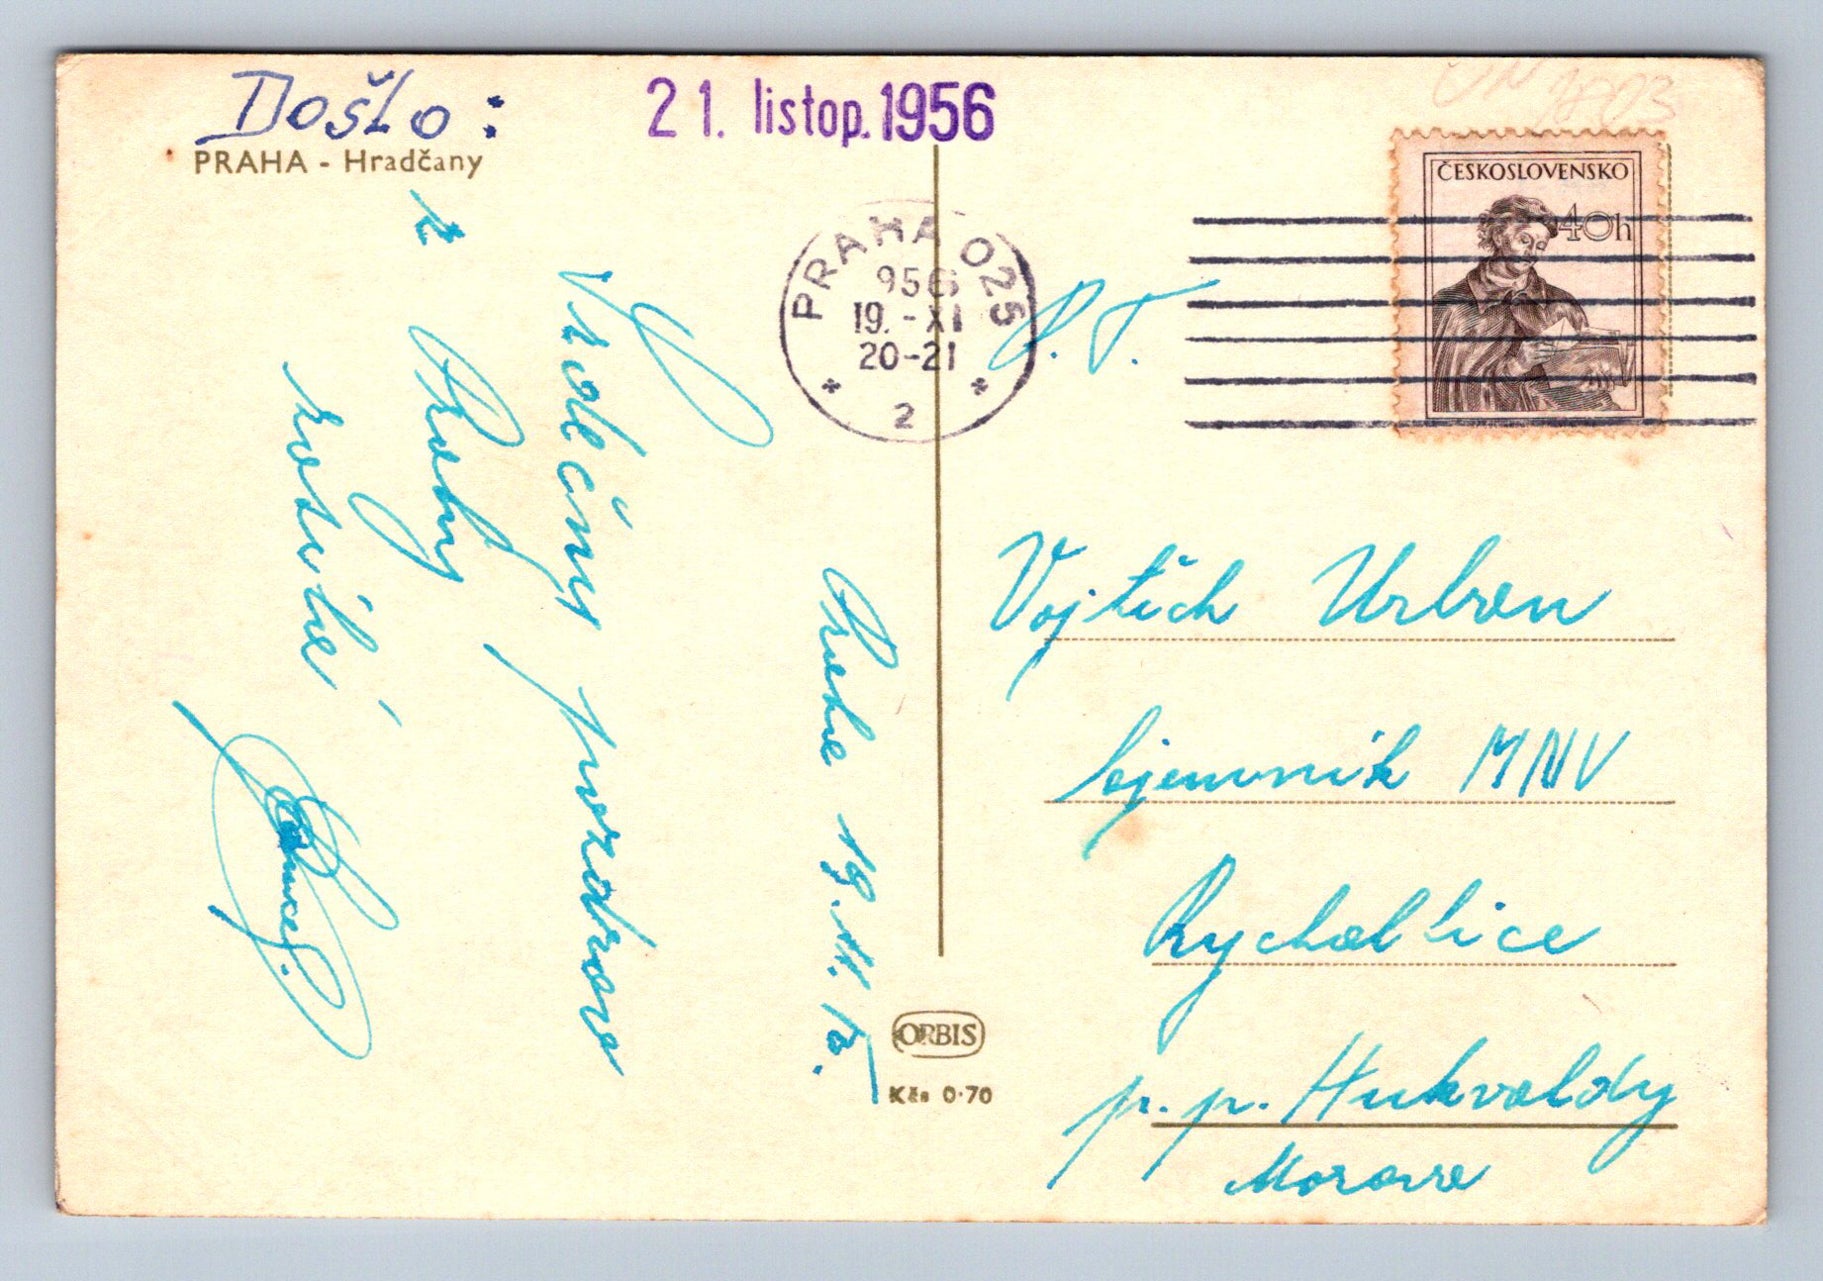 Došlo:
21. listop. 1956
PRAHA - Hradčany
ČESKOSLOVENSKO
40h
PRAHA 025
956
19.-XI
20-21
* 2 *
P. T.
Praha 19. 11.
Srdečný pozdrav
z Prahy
Vojtěch Urban
tajemník MNV
Rychaltice
p. p. Hukvaldy
Morava
ORBIS
Kčs 0·70